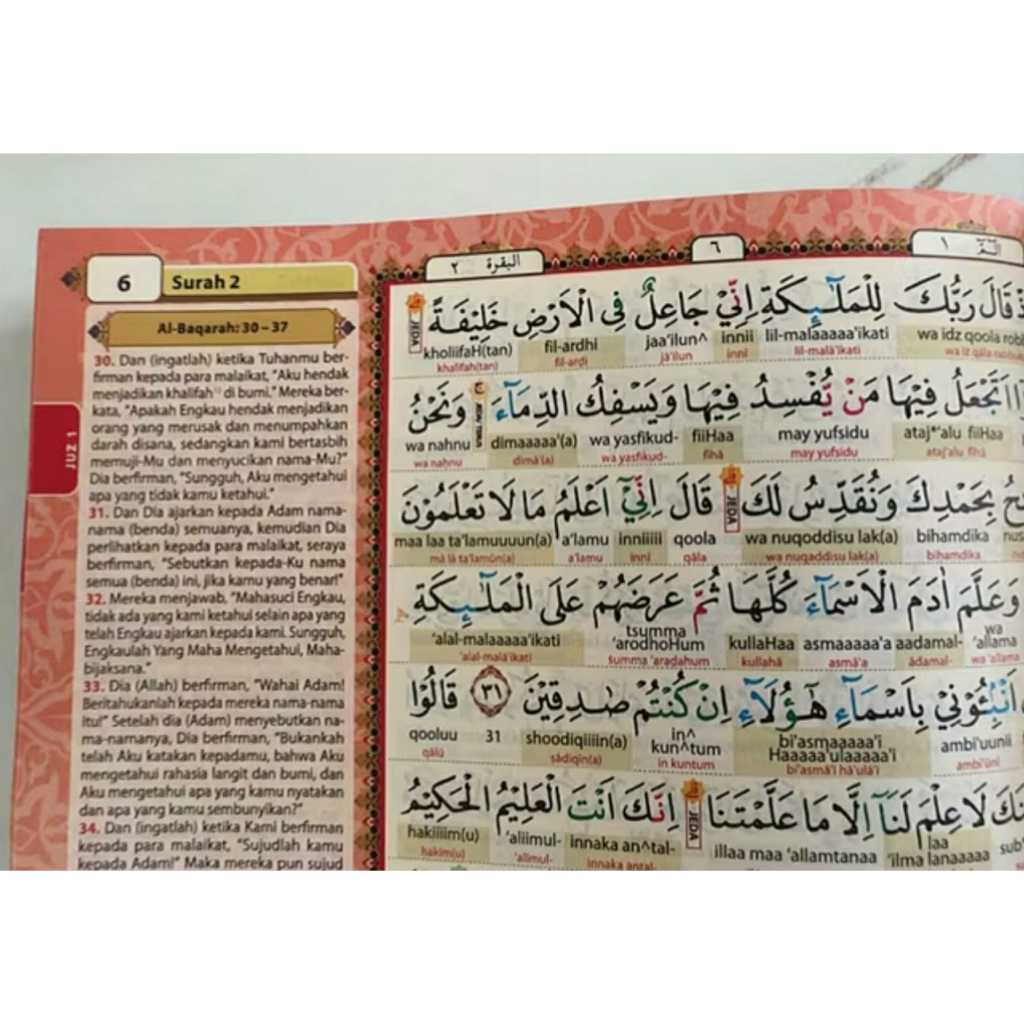 6 Surah 2
Al-Baqarah: 30 – 37
30. Dan (ingatlah) ketika Tuhanmu ber-
firman kepada para malaikat, "Aku hendak
menjadikan khalifah di bumi." Mereka ber-
kata, "Apakah Engkau hendak menjadikan
orang yang merusak dan menumpahkan
darah disana, sedangkan kami bertasbih
memuji-Mu dan menyucikan nama-Mu?"
Dia berfirman, "Sungguh, Aku mengetahui
apa yang tidak kamu ketahui."
31. Dan Dia ajarkan kepada Adam nama-
nama (benda) semuanya, kemudian Dia
perlihatkan kepada para malaikat, seraya
berfirman, "Sebutkan kepada-Ku nama
semua (benda) ini, jika kamu yang benar!"
32. Mereka menjawab, "Mahasuci Engkau,
tidak ada yang kami ketahui selain apa yang
telah Engkau ajarkan kepada kami. Sungguh,
Engkaulah Yang Maha Mengetahui, Maha-
bijaksana."
33. Dia (Allah) berfirman, "Wahai Adam!
Beritahukanlah kepada mereka nama-nama
itu!" Setelah dia (Adam) menyebutkan na-
ma-namanya, Dia berfirman, "Bukankah
telah Aku katakan kepadamu, bahwa Aku
mengetahui rahasia langit dan bumi, dan
Aku mengetahui apa yang kamu nyatakan
dan apa yang kamu sembunyikan?"
34. Dan (ingatlah) ketika Kami berfirman
kepada para malaikat, "Sujudlah kamu
kepada Adam!" Maka mereka pun sujud
JUZ 1
البقرة ٢
٦
١
قَالَ رَبُّكَ لِلْمَلٰۤىِٕكَةِ اِنِّيْ جَاعِلٌ فِى الْاَرْضِ خَلِيْفَةً JEDA
wa idz qoola lil-malaaaaa'ikati innii jaa'ilun^ fil-ardhi kholiifaH(tan)
lil-malā'ikati innī jā'ilun fil-arḍi khalīfah(tan)
اَتَجْعَلُ فِيْهَا مَنْ يُّفْسِدُ فِيْهَا وَيَسْفِكُ الدِّمَاۤءَ وَنَحْنُ
ataj*'alu fiiHaa may yufsidu fiiHaa wa yasfikud- dimaaaaa'(a) wa nahnu
ataj'alu fīhā may yufsidu fīhā wa yasfikud- dimā'(a) wa naḥnu
بِحَمْدِكَ وَنُقَدِّسُ لَكَ JEDA قَالَ اِنِّيْٓ اَعْلَمُ مَا لَا تَعْلَمُوْنَ
bihamdika wa nuqoddisu lak(a) qoola inniiiii a'lamu maa laa ta'lamuuuun(a)
biḥamdika wa nuqaddisu lak(a) qāla innī a'lamu mā lā ta'lamūn(a)
وَعَلَّمَ اٰدَمَ الْاَسْمَاۤءَ كُلَّهَا ثُمَّ عَرَضَهُمْ عَلَى الْمَلٰۤىِٕكَةِ
wa 'allama aadamal- asmaaaaa'a kullaHaa tsumma 'arodhoHum 'alal-malaaaaa'ikati
wa 'allama ādamal- asmā'a kullahā summa 'araḍahum 'alal-malā'ikati
اَنْۢبِـُٔوْنِيْ بِاَسْمَاۤءِ هٰٓؤُلَاۤءِ اِنْ كُنْتُمْ صٰدِقِيْنَ ٣١ قَالُوْا
ambi'uunii bi'asmaaaaa'i Haaaaa'ulaaaaa'i in^ kun^tum shoodiqiiiin(a) 31 qooluu
ambi'ūnī bi'asmā'i hā'ulā'i in kuntum ṣādiqīn(a) qālū
لَا عِلْمَ لَنَآ اِلَّا مَا عَلَّمْتَنَا JEDA اِنَّكَ اَنْتَ الْعَلِيْمُ الْحَكِيْمُ
laa 'ilma lanaaaaa illaa maa 'allamtanaa innaka an^tal- 'aliimul- hakiiiim(u)
innaka antal- 'alīmul- ḥakīm(u)